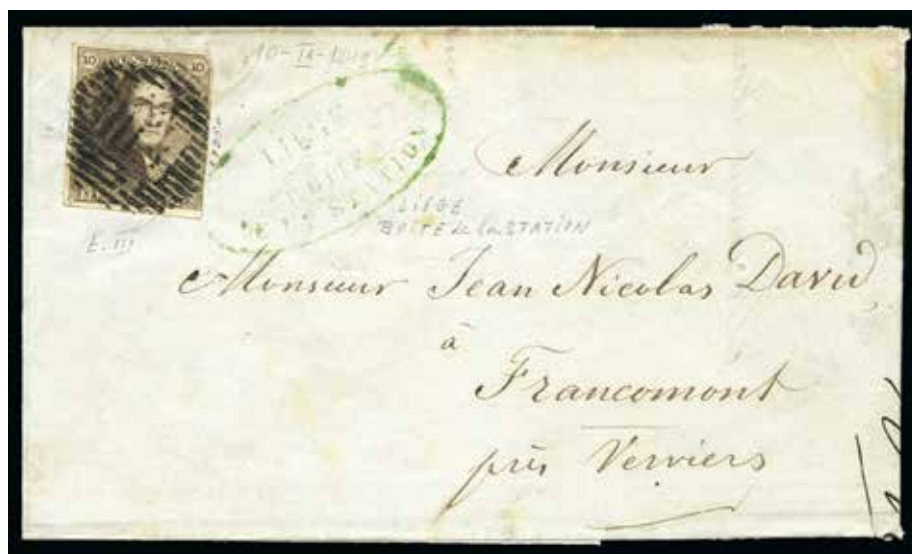 10 10
LIÈGE
BOITE
STATION
LIÉGE
BOITE de la STATION
Monsieur
Monsieur Jean Nicolas David,
à
Francomont
près Verviers